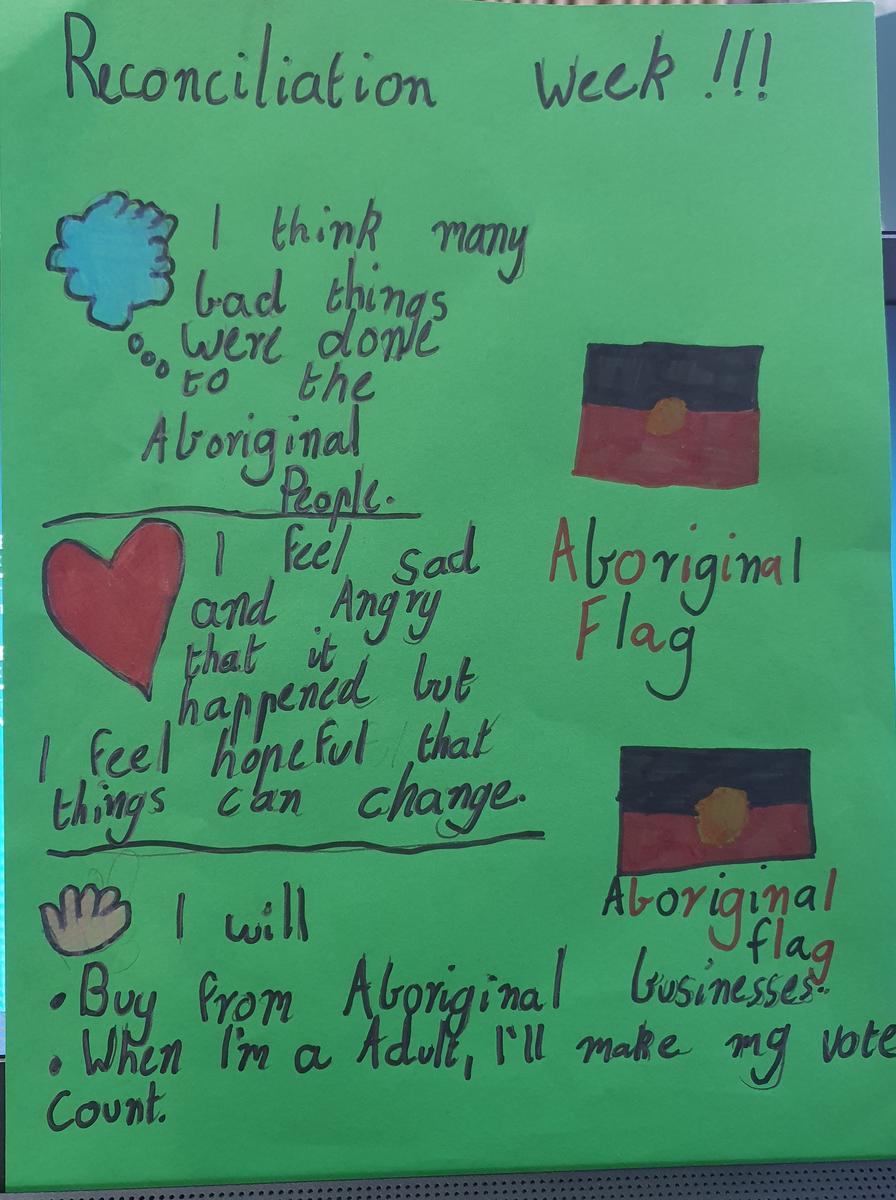 Reconciliation Week !!!
I think many
bad things
were done
to the
Aboriginal
People.
I feel sad
and Angry
that it
happened but
I feel hopeful that
things can change.
Aboriginal
Flag
Aboriginal
flag
I will
• Buy from Aboriginal businesses.
• When I'm a Adult, I'll make my vote
count.